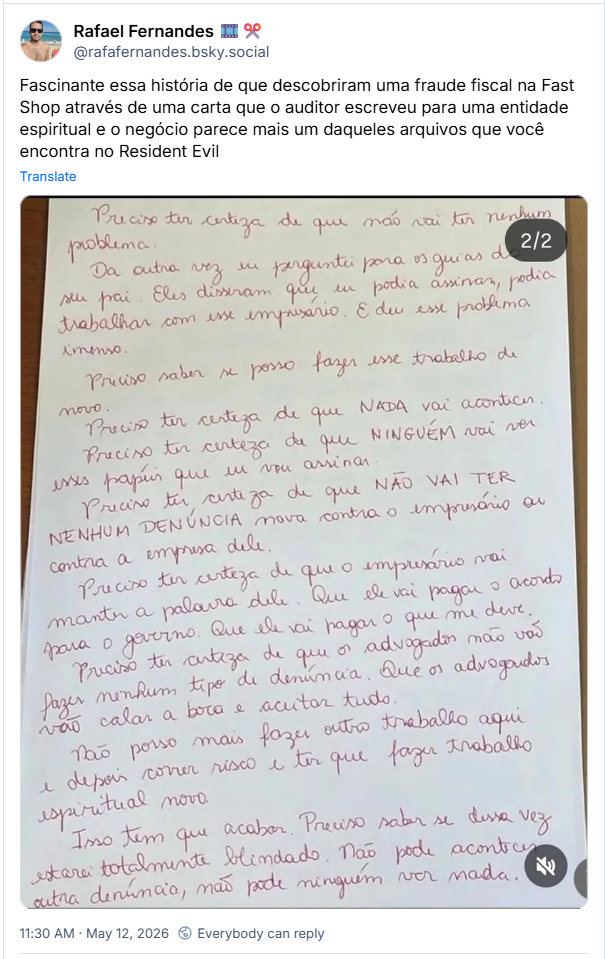 Rafael Fernandes
@rafafernandes.bsky.social
Fascinante essa história de que descobriram uma fraude fiscal na Fast
Shop através de uma carta que o auditor escreveu para uma entidade
espiritual e o negócio parece mais um daqueles arquivos que você
encontra no Resident Evil
Translate
2/2
Preciso ter certeza de que não vai ter nenhum
problema.
Da outra vez eu perguntei para os guias do
seu pai. Eles disseram que eu podia assinar, podia
trabalhar com esse empresário. E deu esse problema
imenso.
Preciso saber se posso fazer esse trabalho de
novo.
Preciso ter certeza de que NADA vai acontecer.
Preciso ter certeza de que NINGUÉM vai ver
esses papéis que eu vou assinar.
Preciso ter certeza de que NÃO VAI TER
NENHUM DENÚNCIA nova contra o empresário ou
contra a empresa dele.
Preciso ter certeza de que o empresário vai
manter a palavra dele. Que ele vai pagar o acordo
para o governo. Que ele vai pagar o que me deve.
Preciso ter certeza de que os advogados não vão
fazer nenhum tipo de denúncia. Que os advogados
vão calar a boca e aceitar tudo.
Não posso mais fazer outro trabalho aqui
e depois correr risco e ter que fazer trabalho
espiritual novo.
Isso tem que acabar. Preciso saber se dessa vez
estarei totalmente blindado. Não pode acontecer
outra denúncia, não pode ninguém ver nada.
11:30 AM · May 12, 2026 Everybody can reply